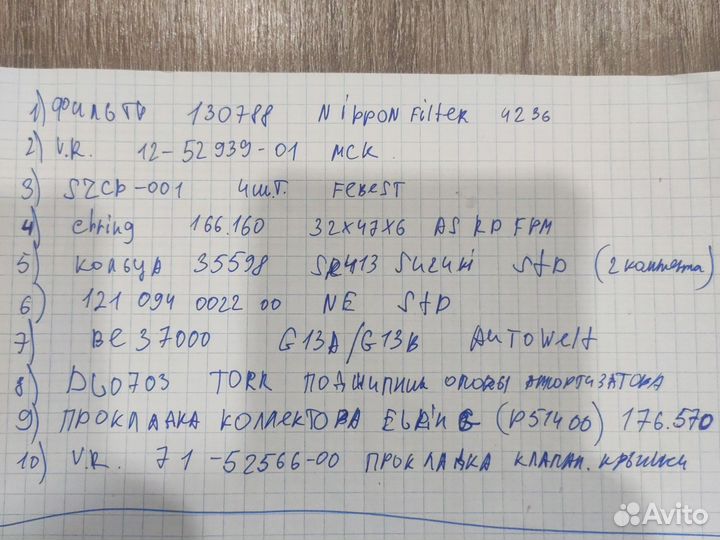 1) Фильтр 130788 Nippon Filter 4236
2) V.R. 12-52939-01 МСК
3) SZCP-001 4шт. FEBEST
4) elring 166.160 32x47x6 AS RD FPM
5) кольца 35598 SR413 Suzuki Std (2 комплекта)
6) 121 094 0022 00 NE Std
7) BE37000 G13A/G13B AUTOWelt
8) DG0703 TORR ПОДШИПНИК ОПОРЫ АМОРТИЗАТОРА
9) ПРОКЛАДКА КОЛЛЕКТОРА ELRING (P51406) 176.570
10) V.R. 71-52566-00 ПРОКЛАДКА КЛАПАН. КРЫШКИ
Avito